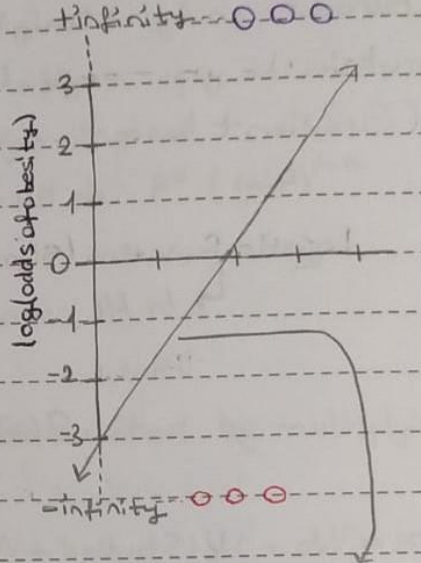 +infinity
3
2
1
0
-1
-2
-3
-infinity
log(odds of obesity)